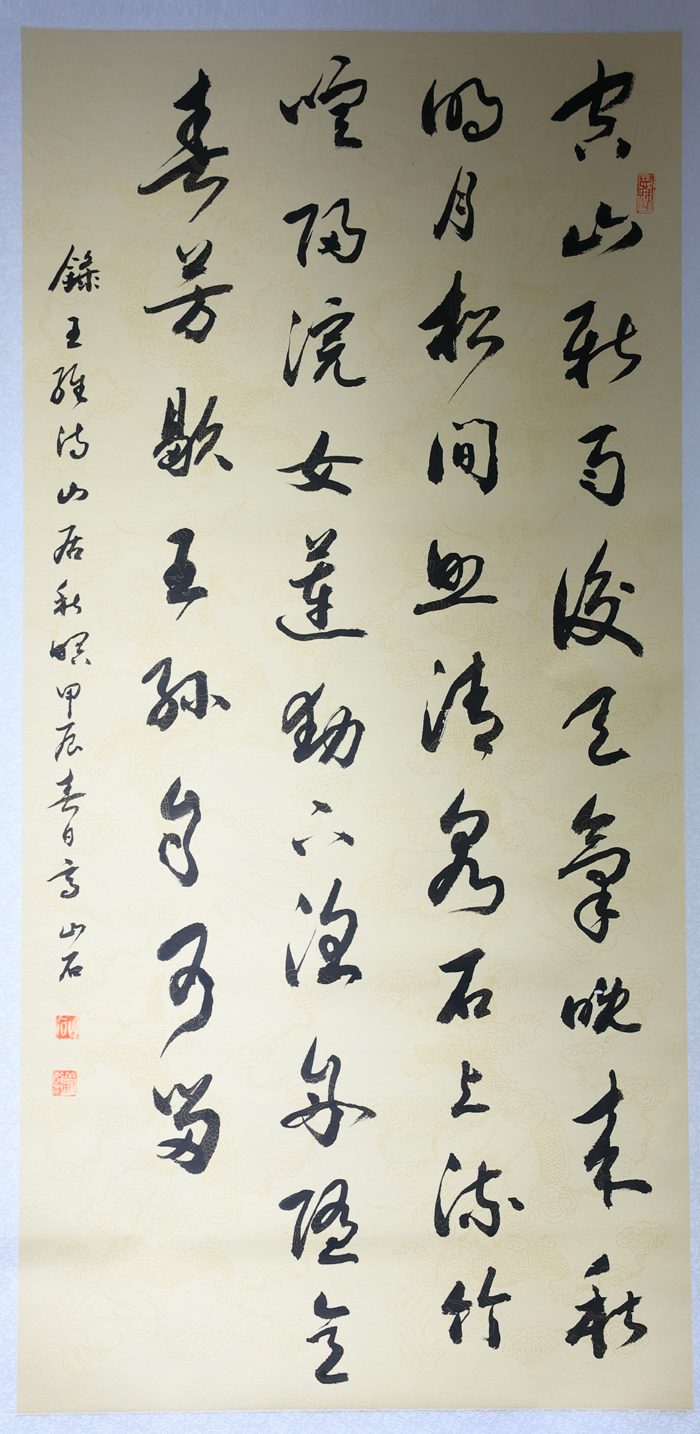 空山新雨後天氣晚來秋
明月松間照清泉石上流竹
喧歸浣女蓮動下漁舟隨意
春芳歇王孫自可留
錄王維詩山居秋暝甲辰春日高山石